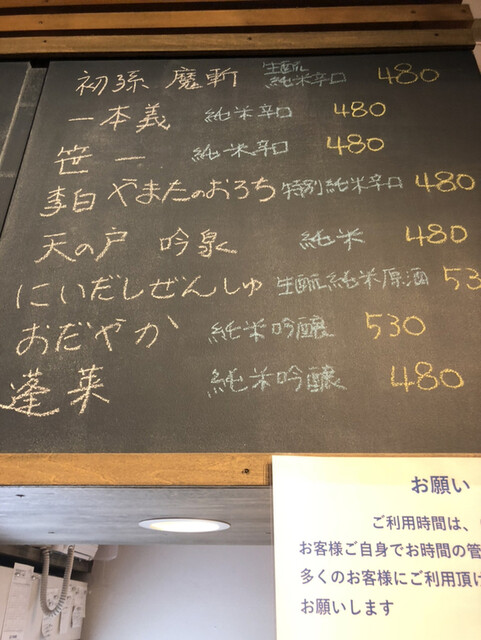 初孫 魔斬 生酛純米辛口 480
一本義 純米辛口 480
笹一 純米辛口 480
李白 やまたのおろち 特別純米辛口 480
天の戸 吟泉 純米 480
にいだしぜんしゅ 生酛純米原酒 53
おだやか 純米吟醸 530
蓬莱 純米吟醸 480
お願い
ご利用時間は、
お客様ご自身でお時間の管
多くのお客様にご利用頂け
お願いします